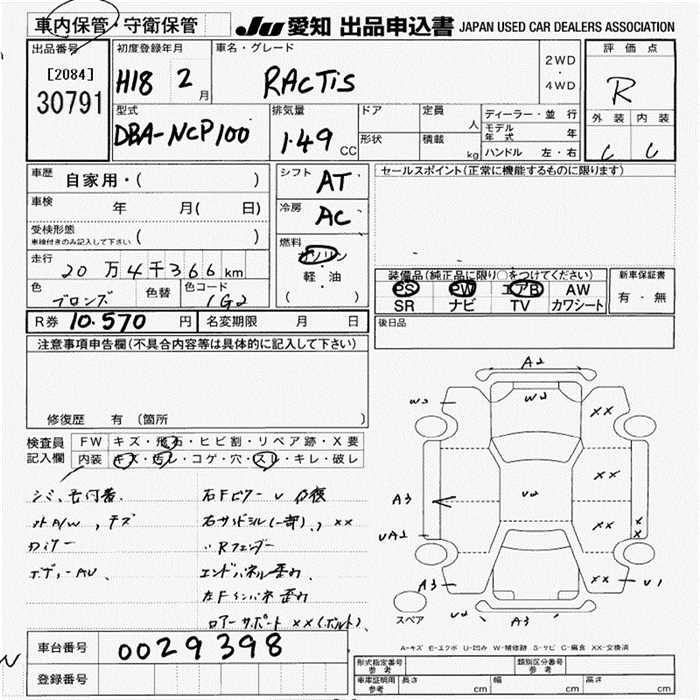 車内保管・守衛保管
JU 愛知 出品申込書 JAPAN USED CAR DEALERS ASSOCIATION
出品番号
[2084]
30791
初度登録年月
H18 2月
車名・グレード
RACTIS
2WD
・
4WD
評価点
R
外装 内装
型式
DBA-NCP100
排気量
1.49 CC
ドア
形状
定員 人
積載 kg
ディーラー・並行
モデル年式 年
ハンドル 左・右
車歴 自家用・( )
車検 年 月( 日)
受検形態
車検付きのみ記入して下さい ( )
走行
20万4千366km
色 ブロンズ
色替
色コード 1G2
シフト AT
冷房 AC
燃料
ガソリン
・
軽・油
( )
セールスポイント(正常に機能するものに限ります)
装備品(純正品に限り○をつけてください)
PS PW エアB AW
SR ナビ TV カワシート
新車保証書
有・無
R券 10.570 円 名変期限 月 日
後日品
注意事項申告欄(不具合内容等は具体的に記入して下さい)
修復歴 有(箇所 )
検査員記入欄
FW キズ・飛石・ヒビ割・リペア跡・X要
内装 キズ・汚レ・コゲ・穴・スレ・キレ・破レ
右Fピラー
右サイドシル(一部), XX
〃Rフェンダー
エンドパネル歪み
左Fインパネ歪み
ロアーサポート XX(ボルト)
A2
W2
W2
XX
XX
A3
U2
XX
UA2
A3
XX
U1
U2
A3
スペア
A-キズ E-エクボ U-凹み W-補修跡 S-サビ C-腐食 XX-交換済
車台番号 0029398
登録番号
形式指定番号
参考
類別区分番号
参考
車庫証明用
参考
長さ cm
幅 cm
高さ cm